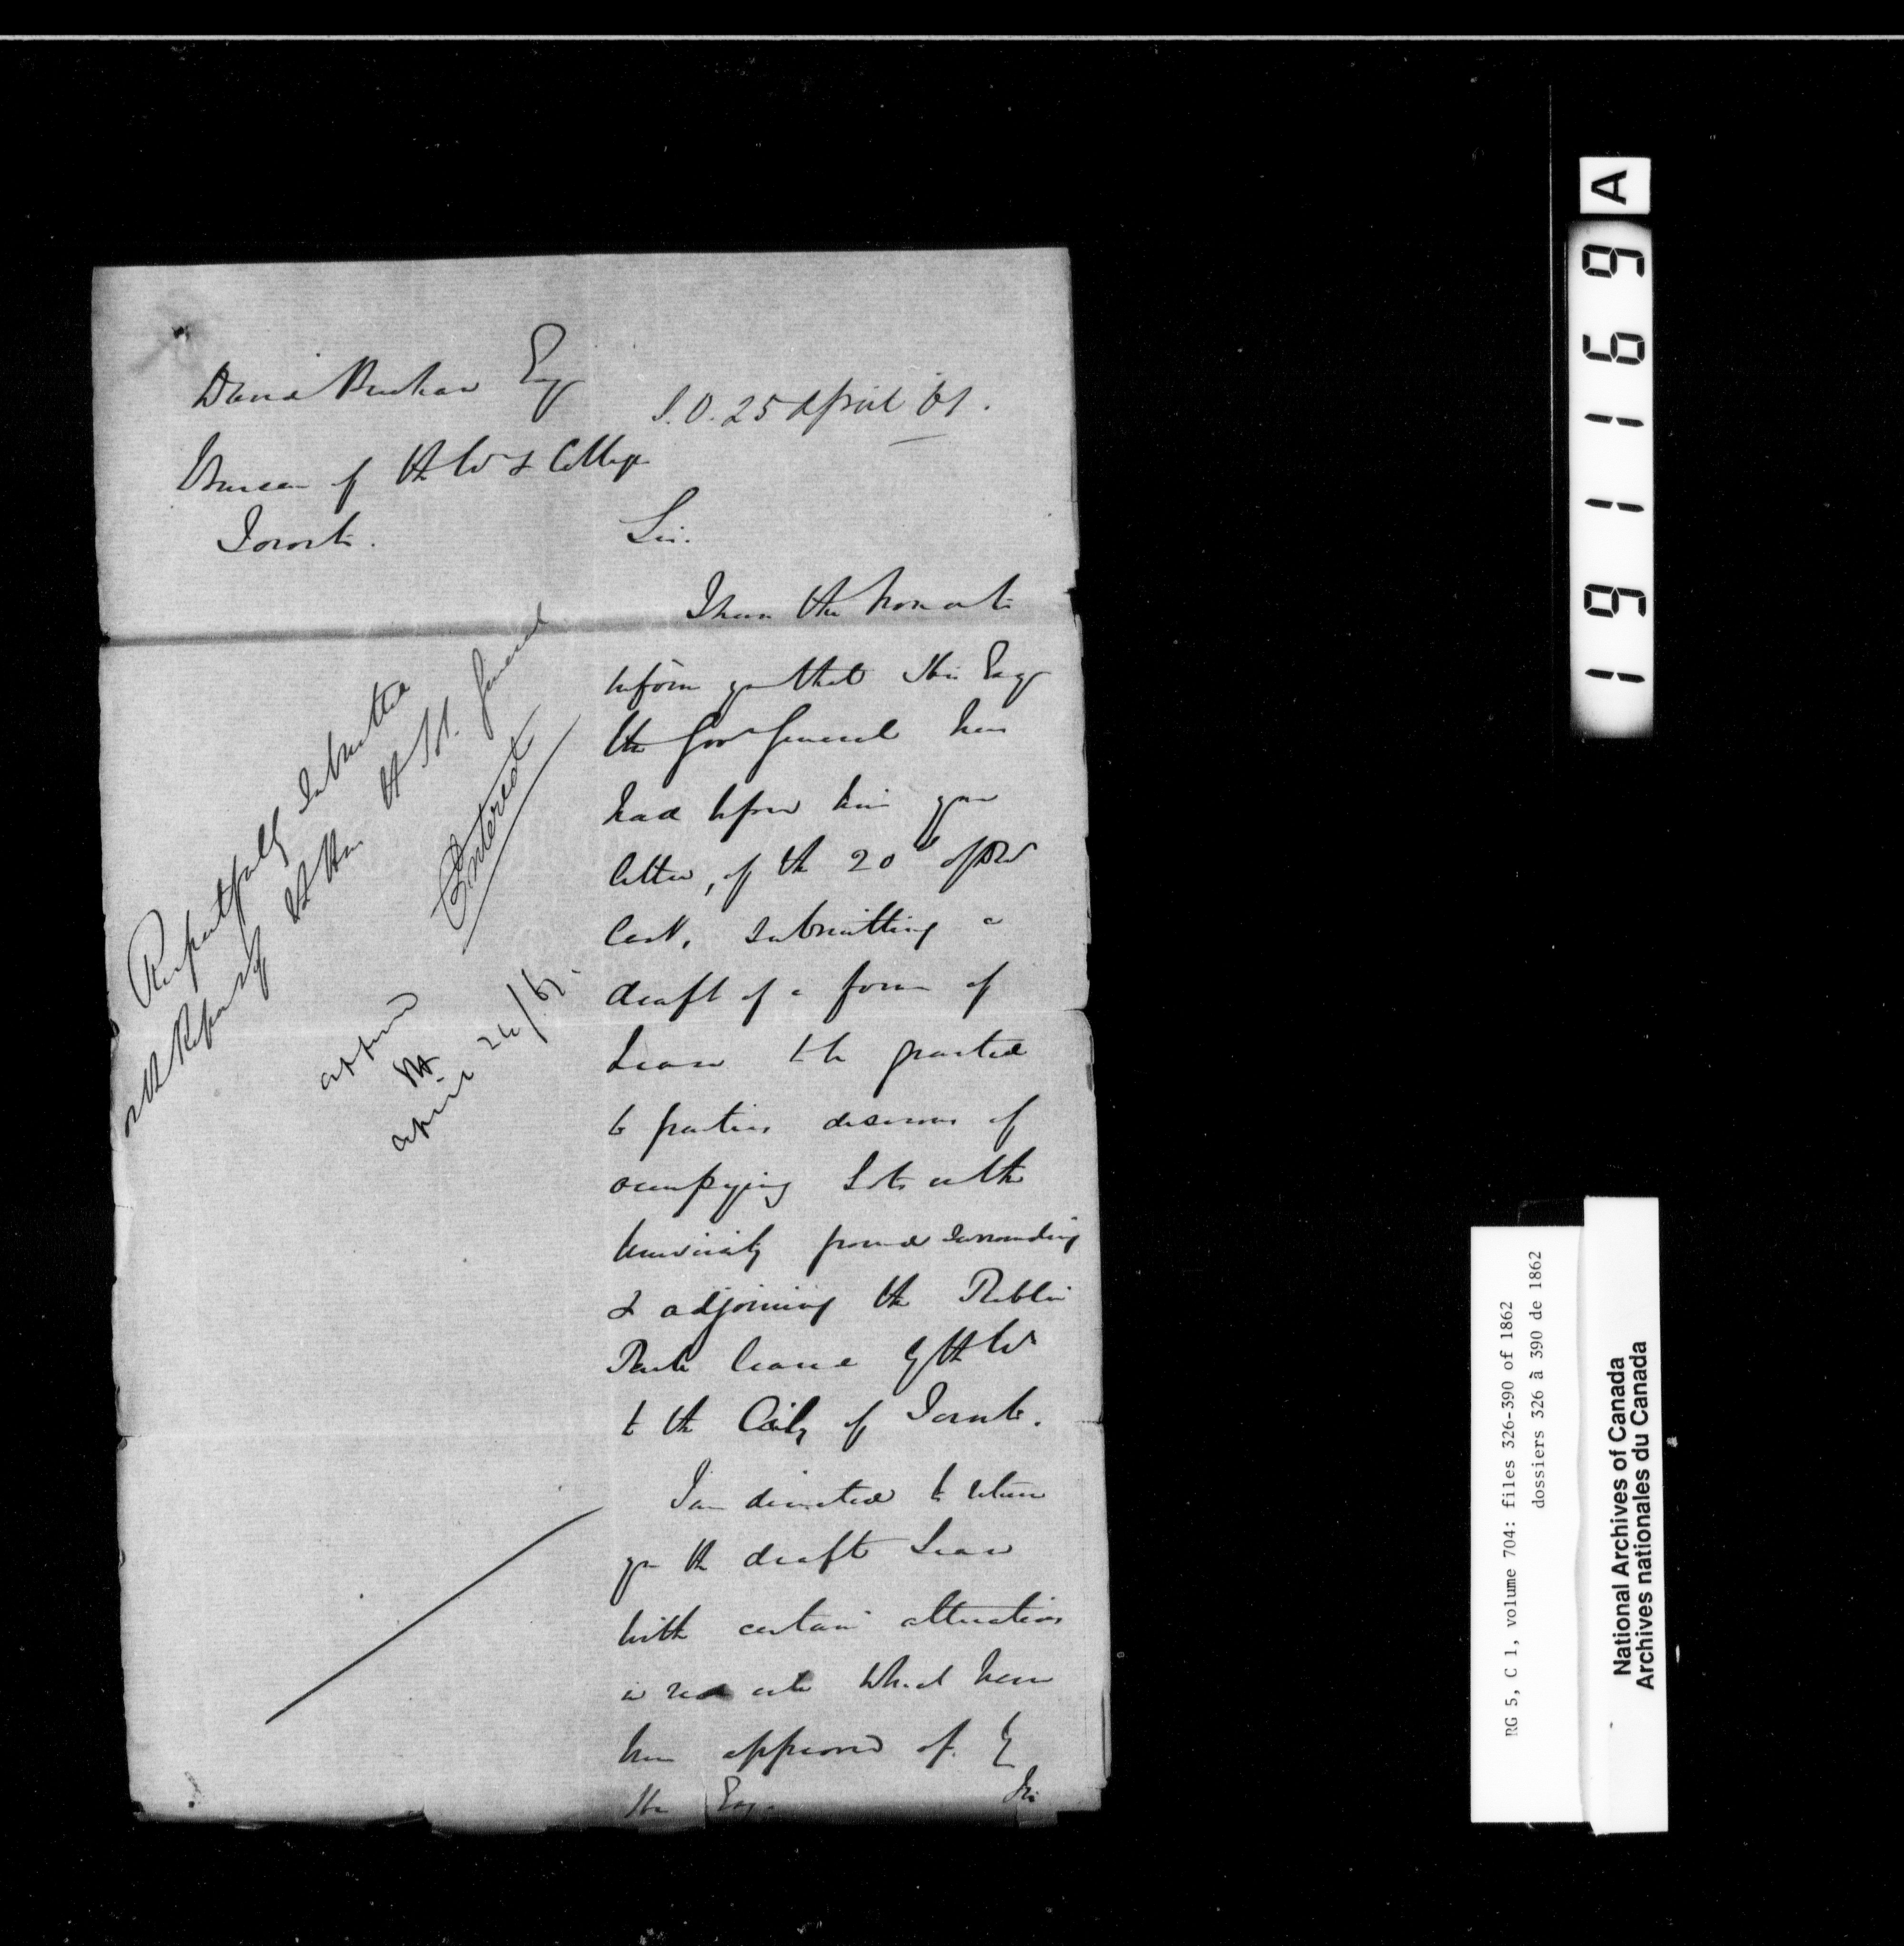 David Buchan Esq
S.O. 25 April 61.
Bursar of the Uny & College
Toronto.
Sir.
I have the honor to
inform you that His Excy
the Govr General has
had before him your
letter, of the 20th
last, submitting a
draft of a form of
Lease to be granted
to parties desirous of
occupying Lots on the
University ground surrounding
& adjoining the Public
Park leased by the
to the City of Toronto.
I am directed to return
you the draft Lease
with certain alterations
in red ink which have
been approved of by
His Excy.
Respectfully Submitted
on the Report of the Hon the Sol. General
Entered
approved
April 24/61.
191169 A
RG 5, C 1, volume 704: files 326-390 of 1862
dossiers 326 à 390 de 1862
National Archives of Canada
Archives nationales du Canada